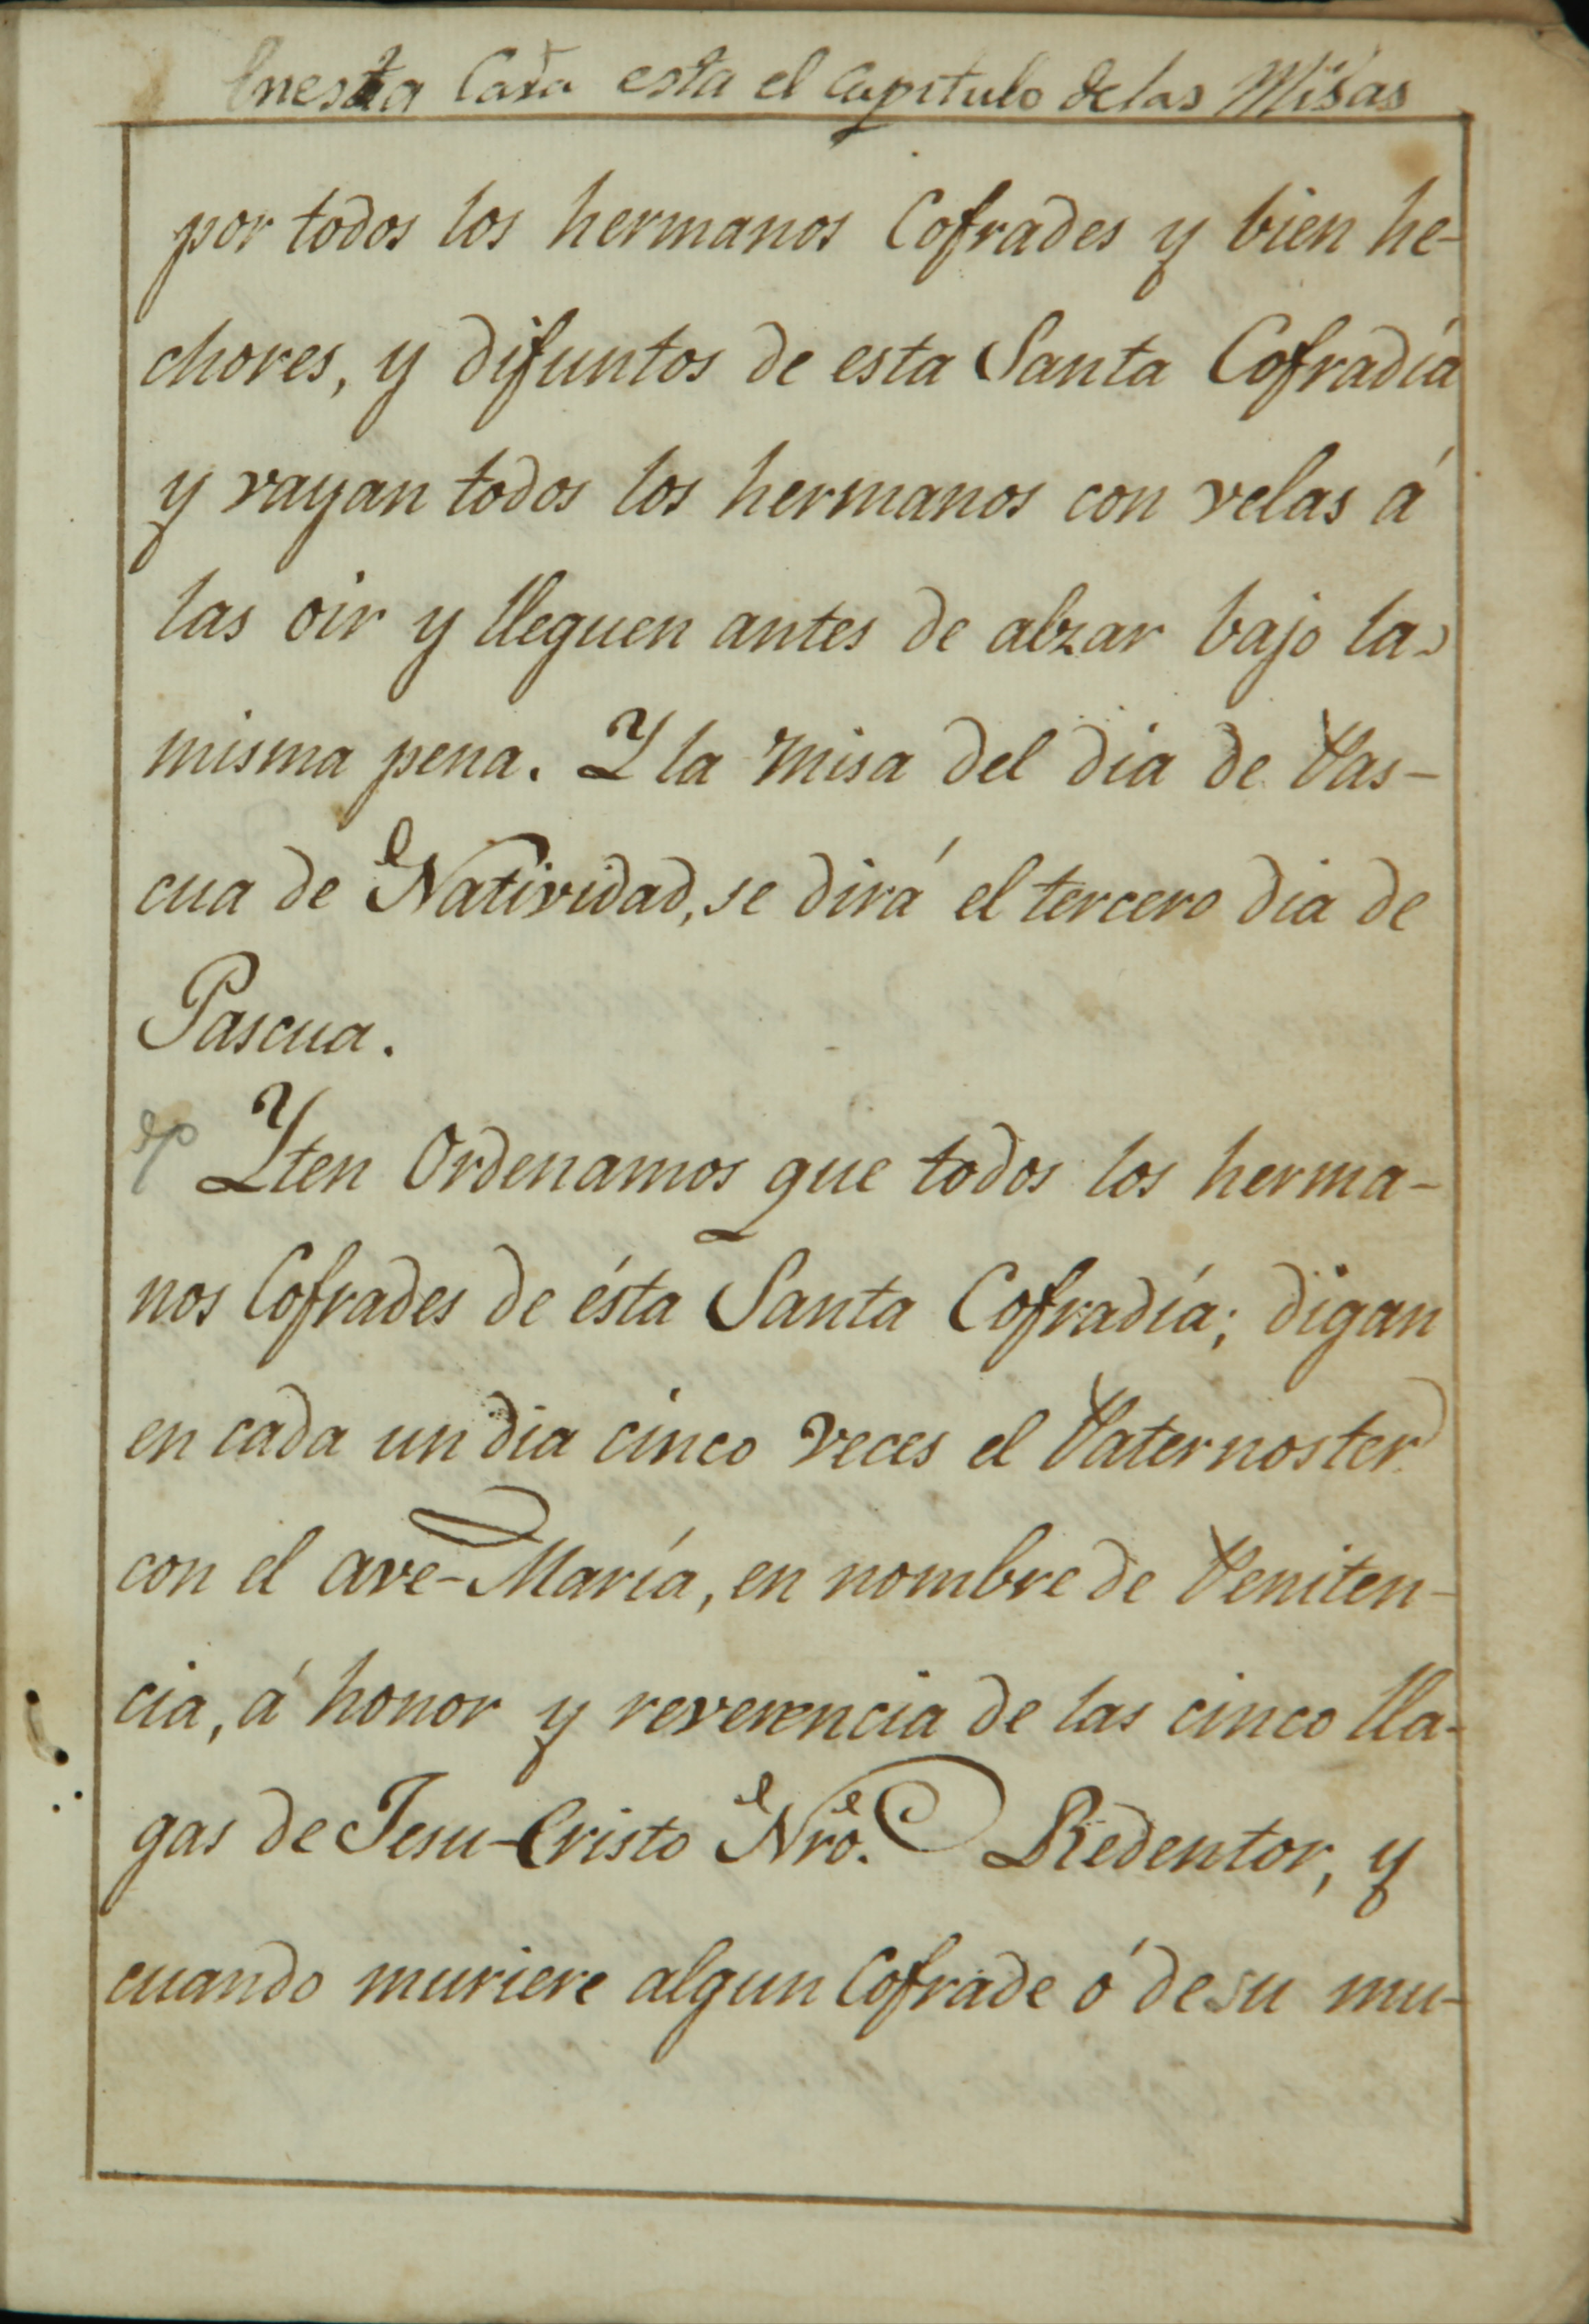 Enesta Cara esta el capitulo delas Misas
por todos los hermanos Cofrades y bien he-
chores, y difuntos de esta Santa Cofradía
y vayan todos los hermanos con velas á
las oir y lleguen antes de alzar bajo la
misma pena. Y la Misa del dia de Pas-
cua de Natividad, se dirá el tercero dia de
Pascua.
Yten Ordenamos que todos los herma-
nos Cofrades de ésta Santa Cofradía; digan
en cada un dia cinco veces el Paternoster
con el ave-María, en nombre de Peniten-
cia, á honor y reverencia de las cinco lla-
gas de Jesu-Cristo Nro. Redentor, y
cuando muriere algun Cofrade ó de su mu-